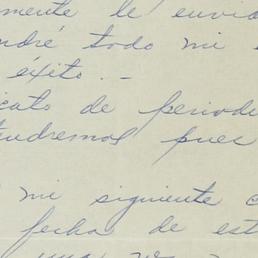 mente le envia
ndré todo mi
éxito.—
cato de periodi
tudremos pues
mi siguiente c
fecha de est
una